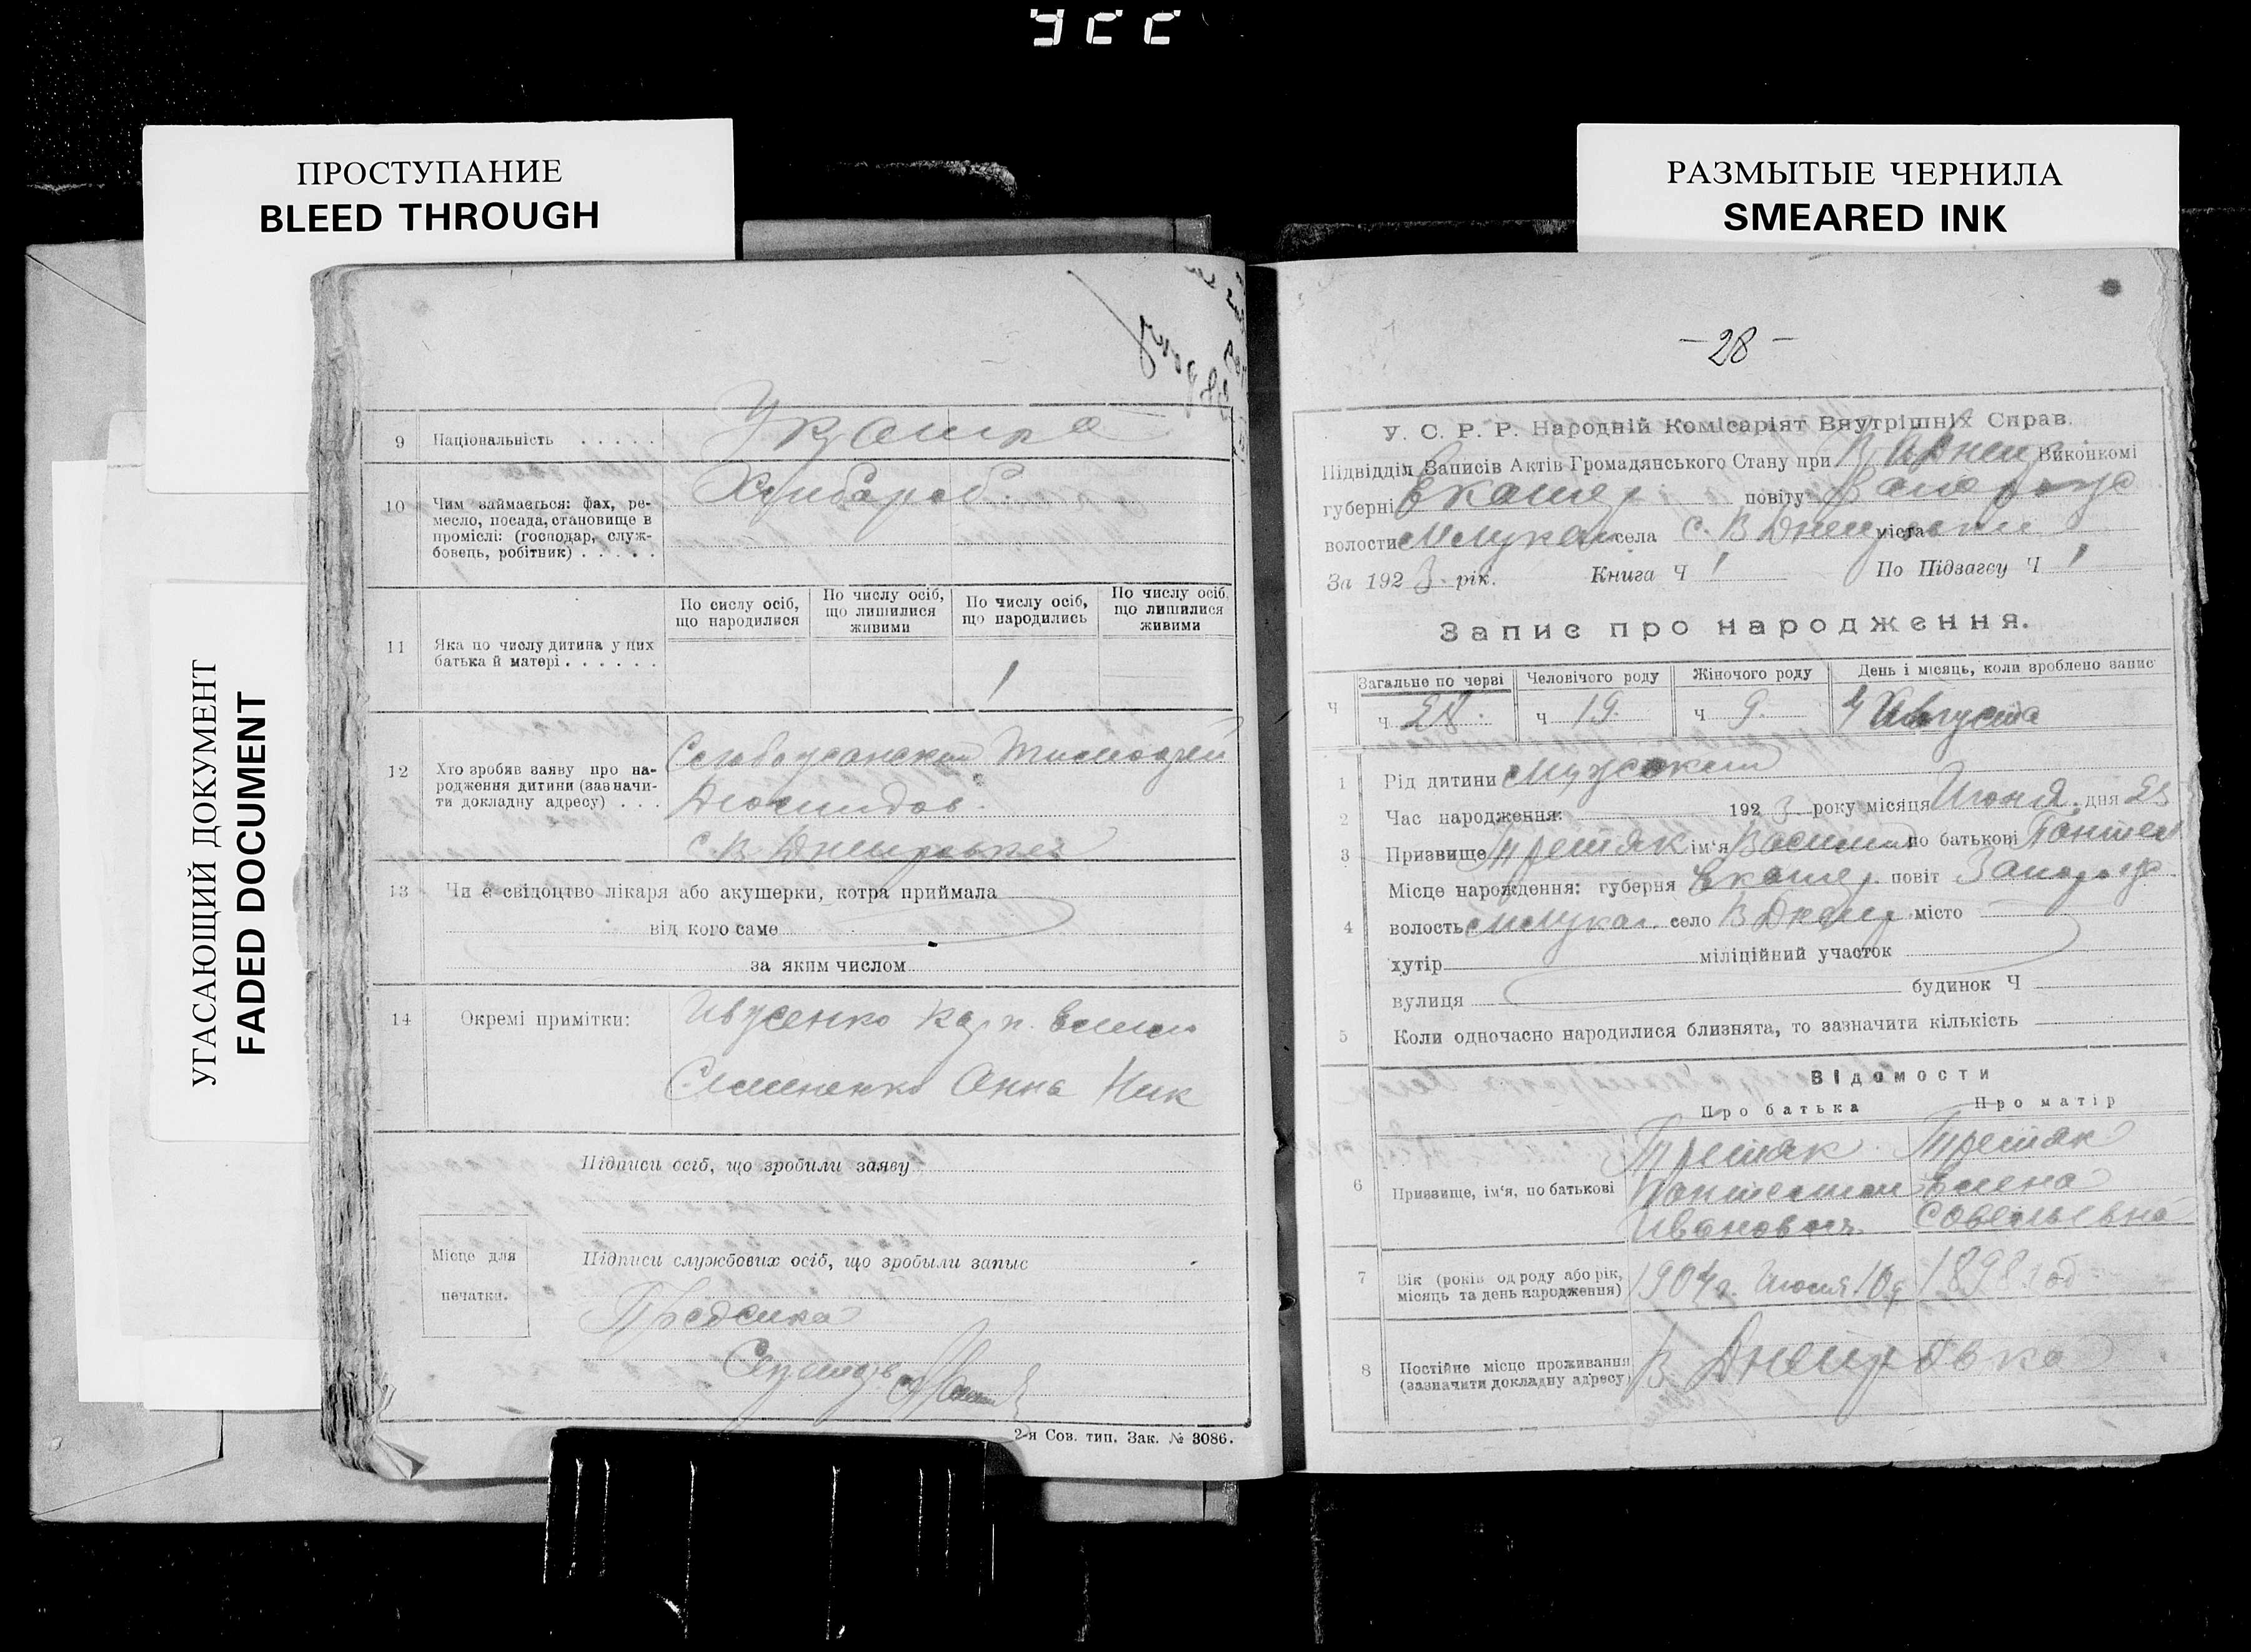 ПРОСТУПАНИЕ
BLEED THROUGH
РАЗМЫТЫЕ ЧЕРНИЛА
SMEARED INK
УГАСАЮЩИЙ ДОКУМЕНТ
FADED DOCUMENT
9 Національність . . . . .
10 Чим займається: фах, ре-
месло, посада, становище в
проміслі: (господар, служ-
бовець, робітник) . . . . .
Хлибороб.
11 Яка по числу дитина у цих
батька й матері . . . . . .
По сислу осіб,
що народилися
По числу осіб,
що лишилися
живими
По числу осіб,
що народились
По числу осіб,
що лишилися
живими
1
12 Хто зробив заяву про на-
родження дитини (завначи-
ти докладну адресу) . . .
Тимофей
с. В Днепровки
13 Чи є свідоцтво лікаря або акушерки, котра приймала
від кого саме
за яким числом
14 Окремі примітки:
Ивусенко
Анна Ник
Підписи осіб, що зробили заяву
Місце для
печатки.
Підписи службових осіб, що зробыли запыс
2-я Сов. тип. Зак. № 3086.
- 28 -
У. С. Р. Р. Народній Комісаріят Внутрішніх Справ.
Підвідділ Записів Актів Громадянського Стану при В Днеп Виконкомі
губерні Екатер. повіту Запорож
волости села с. В Днепровки міста
За 1923 рік. Книга Ч 1 По Підзагсу Ч 1
Запис про народження.
Ч Загальне по черві Человічого роду Жіночого роду День і місяць, коли зроблено запис
ч 28. ч 19. ч 9. 4 Августа
1 Рід дитини мужской
2 Час народження: 1923 року місяця Июня дня 25
3 Призвище Третяк ім'я Василий по батькові Пантел
4 Місце народження: губерня Екатер. повіт Запорож
волость село В Днепр місто
хутір міліційний участок
вулиця будинок Ч
5 Коли одночасно народилися близнята, то зазначити кількість
Відомости
Про батька Про матір
6 Призвище, ім'я, по батькові
Третяк
Пантелимон
Иванович
Третяк
Елена
Савельевна
7 Вік (років од роду або рік,
місяць та день народження)
1904 г. Июня 10 д
1898 год
8 Постійне місце проживання
(зазначити докладну адресу)
В Днепровка